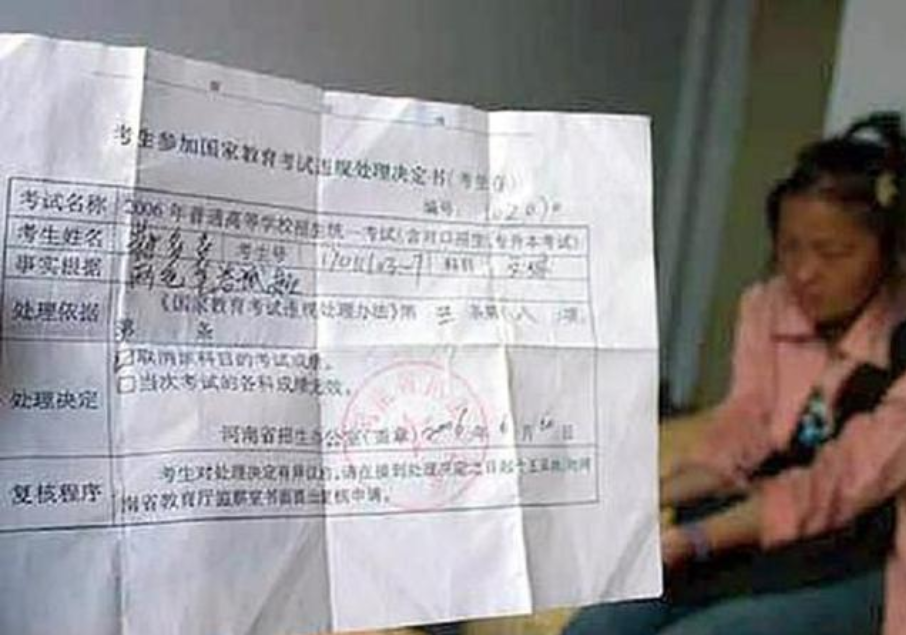 考生参加国家教育考试违规处理决定书(考生存)
编号:
考试名称 2006年普通高等学校招生统一考试(含对口招生、专升本考试)
考生姓名 考生号 科目 文综
事实根据 两色笔答试题
处理依据 《国家教育考试违规处理办法》第 条第 八 项、
第 条
处理决定 取消该科目的考试成绩。
□当次考试的各科成绩无效。
河南省招生办公室(盖章) 2006年6月 日
复核程序 考生对处理决定有异议的,请在接到处理决定之日起十五日内,向河
南省教育厅监察室书面提出复核申请。